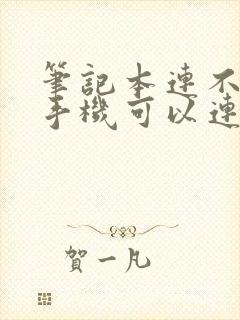 筆記本連不
手機可以連
賀一凡